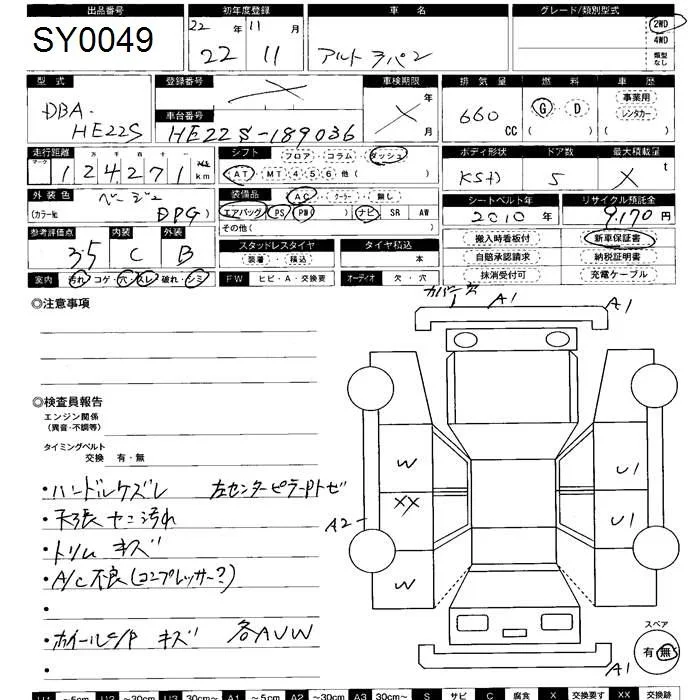 出品番号 初年度登録 車名 グレード/類別型式
SY0049 22年 11月 アルト ラパン 2WD
22 11 4WD
類型なし
型式 登録番号 車検期限 排気量 燃料 車歴
DBA- X X 年 660 G ・ D 事業用
HE22S 車台番号 月 CC ( ) レンタカー
HE22S-189036 ( )
走行距離 シフト フロア ・ コラム ・ ダッシュ ボディ形状 ドア数 最大積載量
マーク 十万千百十一
124271 km AT ・ MT 4 5 6 他( ) 5 X t
外装色 ベージュ 装備品 AC ・ クーラー ・ 無し シートベルト年 リサイクル預託金
(カラーNo. DPG) エアバッグ( ) PS PW( ) ナビ SR AW 2010年 9,170円
その他( )
参考評価点 内装 外装 スタッドレスタイヤ タイヤ積込 搬入時看板付 新車保証書
3.5 C B 装着 ・ 積込 本 自賠承認請求 納税証明書
室内 汚れ コゲ ・ 穴 ・ スレ ・ 破れ ・ シミ FW ヒビ ・ A ・ 交換要 オーディオ 欠 ・ 穴 抹消受付可 充電ケーブル
◎注意事項
カバー欠 A1 A1
◎検査員報告
エンジン関係
(異音・不調等)
タイミングベルト
交換 有・無
・ハンドルケズレ 左センターピラー内トゼ
・天張 ヤニ汚れ
・トリム キズ
・A/C不良(コンプレッサー?)
・
・ホイールC/P キズ 各AUW
・
W U1
XX U1
A2
W
A1
スペア
有・無
U1 ～5cm U2 ～30cm U3 30cm～ A1 ～5cm A2 ～30cm A3 30cm～ S サビ C 腐食 X 交換要す XX 交換跡